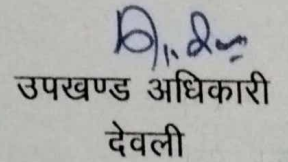 उपखण्ड अधिकारी
देवली